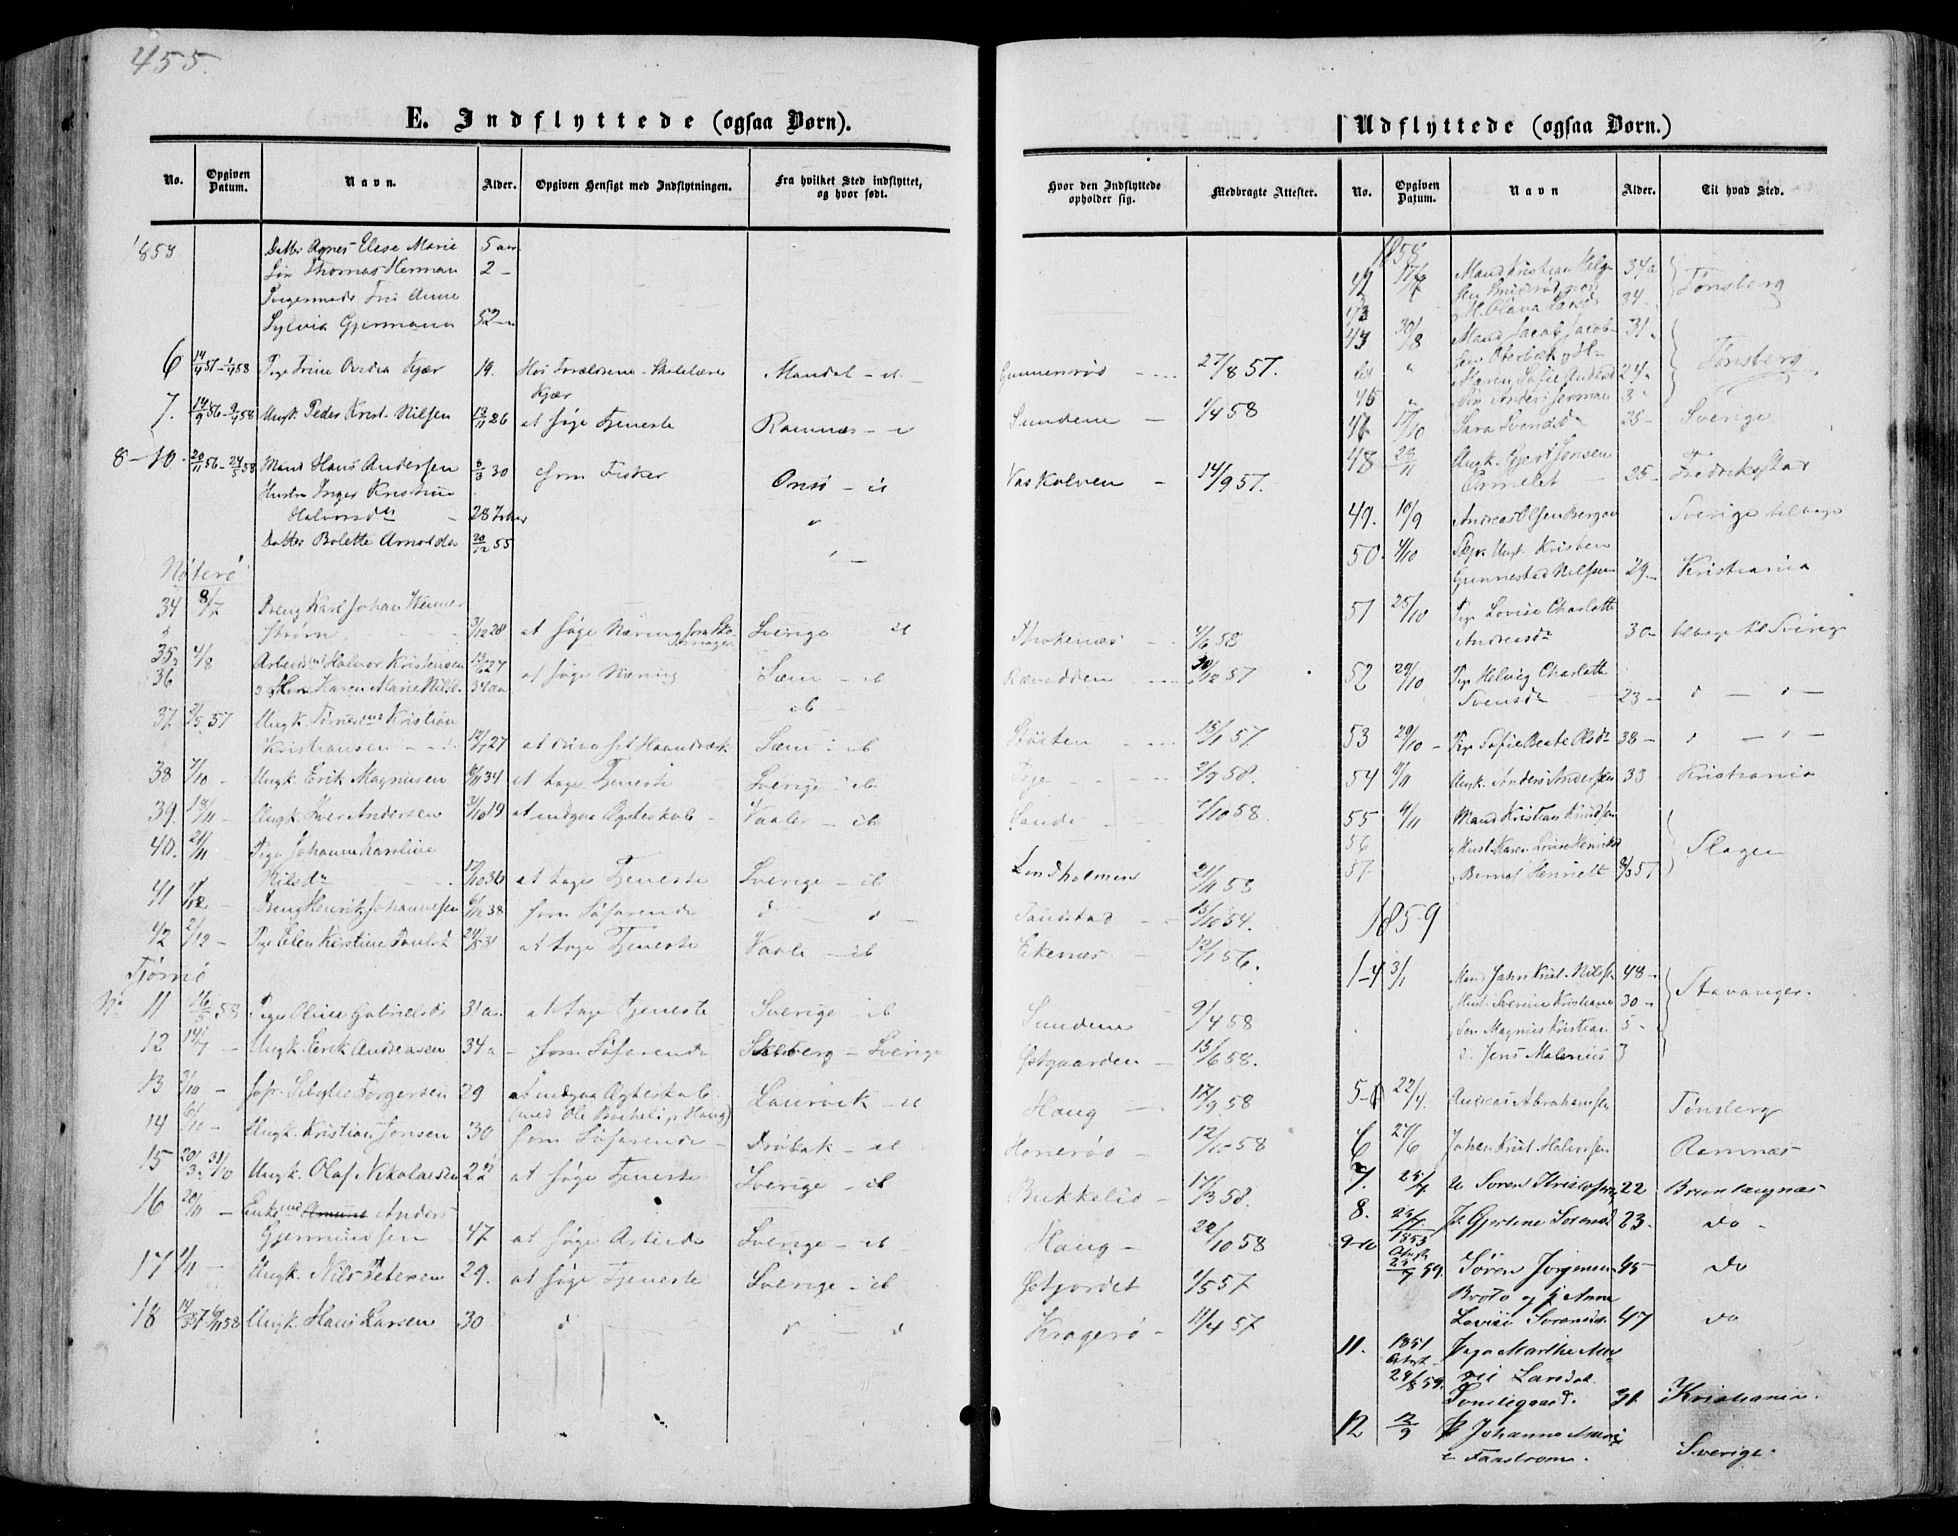 455.
E. Indflyttede (ogsaa Børn).
No.
Opgiven Datum.
Navn.
Alder.
Opgiven Hensigt med Indflytningen.
Fra hvilket Sted indflyttet, og hvor født.
1858
Datter Agnes Elese Marie 5 aar
Søn Thomas Herman 2 -
Anne
Sylvia Gjermana 52
6 14/4 57 - 1/4 58 Pige Trine Ovedia Kjær 19. Hos Forældrene - Skolelærer Mandal - ib
Kjær
7. 14/9 56 - 9/4 58 Ungk. Peder Krist. Nilsen 13/11 26 at søge Tjeneste Ramnæs - ib
8-10. 20/11 56 - 24/5 58 Mand Hans Andersen 8/3 30 som Fisker Onsø - ib
Hustru Inger Kristine
Halvorsdtr - 28
Datter Bolette Arnolda 20/12 55
Nøterø
34 8/7 Dreng Karl Johan Wenner-
strøm 3/12 28 at søge Næring som Sko- Sverige ib
mager
35 4/8 Arbeidsmd Halvor Kristensen 27 at søge Næring Sem - ib
36 Karen Marie Nilsd. 34 aar ib -
37 2/5 57 Ungk. Kristian
Kristiansen 12/7 27 at drive sit Haandværk Sem - ib
38 7/10 - Ungk. Erik Magnusen 6/11 34 at tage Tjeneste Sverige - ib
39. 19/11 - Ungk. Iver Andersen 31/10 19 at indgaa Ægteskab - Vaaler - ib
40. 21/11 Pige Johanne Karoline
Nilsdtr 17/10 36 at tage Tjeneste Sverige - ib
41 1/12 - Dreng Henrik Johannesen 6/12 38 som Søfarende d - d -
42 2/12 - Pige Elen Kirstine Paulsd. 24/5 31 at tage Tjeneste Vaale - ib
Tjømø
No 11 16/5 58 Pige Oline Gabrielsd. 31 a. at tage Tjeneste Sverige - ib
12 14/7 - Ungk. Erik Andersen 34 a - som Søfarende - Sverige
13 3/10 - Torgersen 29 at indgaa Ægteskab Laurvik - ib
(med Ole Haug)
14 6/10 - Ungk. Kristian Jonsen 30 som Søfarende - Drøbak - ib
15 20/3 - 31/10 Ungk. Olaf Nikolaisen 22 at søge Tjeneste Sverige - ib
16 20/11 - Enkemd Anders
Gjermundsen - 47 at søge Arbeide Sverige - ib
17 1/11 - Ungk. Nils Petersen 29. at søge Tjeneste Sverige - ib
18 14/3 57 - 6/11 58 Ungk. Hans Larsen 30 d d - d
Hvor den Indflyttede opholder sig.
Medbragte Attester.
Gunnerød - 27/8 57.
Sundene - 1/4 58
Vaskalven - 14/9 57.
Thokenæs - 4/6 58
Rævodden 30/12 57
Støiten 15/1 57.
Teje 2/9 58.
Sande 7/10 58.
Lindholmen 21/11 58
13/10 54.
Ekenæs 12/1 56.
Sundene 9/4 58
Østgaarden - 15/6 58.
Haug 17/9 58
Honerød - 12/10 58
Bukkelid - 17/3 58.
Haug - 22/10 58
Østjordet 1/5 57
Kragerø - 11/4 57
Udflyttede (ogsaa Børn.)
No.
Opgiven Datum.
Navn
Alder.
Til hvad Sted.
1858
42 17/7 Mand Kristian Helge- 34 a
sen Smidsrød og Tønsberg
43 H. Olava Larsd. 34 -
43 30/8 Mand Jacob Jacob- 31 -
sen Oterbæk og H- Tønsberg
Maren Sofie Andersd. 24 -
45 Søn Anders Herman 3 -
47 17/10 Sara Svendsd. 35 - Sverige
48 23/11 Ungk. Gjert Jensen
Ormelet - 25 - Fredrikstad
49. 10/9 Andreas Olsen Bergan Sverige tilbage
50. 4/10 Ungk. Kristen
Gunnestad Nilsen 29 - Kristiania
51 25/10 Pige Lovise Charlotte
Andreasdtr 30 - tilbage til Sverige
52 29/10 Pige Helvig Charlotte
Svensdtr 23 -
53 29/10 - Pige Sofie Beate Olsdtr 38 -
54 11/11 Ungk. Anders Andersen 33 Kristiania
55 4/11 Mand Kristian Knudsen
56 Hust. Karen Lovise Henriksd. Slagen
57 Bernt Henrik 3/3 57
1859
1-4 3/1 Mand Johan Krist. Nilsen 48 - Stavanger.
Hust. Severine Kristiane 30 -
Søn Magnus Kristian 5 -
d. Jens Malenius 3
5 22/4. Andreas Abrahamsen Tønsberg
6 27/6 Johan Krist. Halvorsen Ramnæs
7. 25/7. Søren Kristofersen 22 Brunlaugnæs
8. 25/7 P. Gjertine Sørensd. 23. do -
9-10 1853
Attest
25/7 59. Søren Jørgensen 45 do
Brøtø og H. Anne
Lovise Sørensd. 47 do
11. 1851 Pige Marthe Ma-
Attest
29/8 59. Larsdtr.
31 Kristiania.
12 12/9 P. Johanne
Sverige.